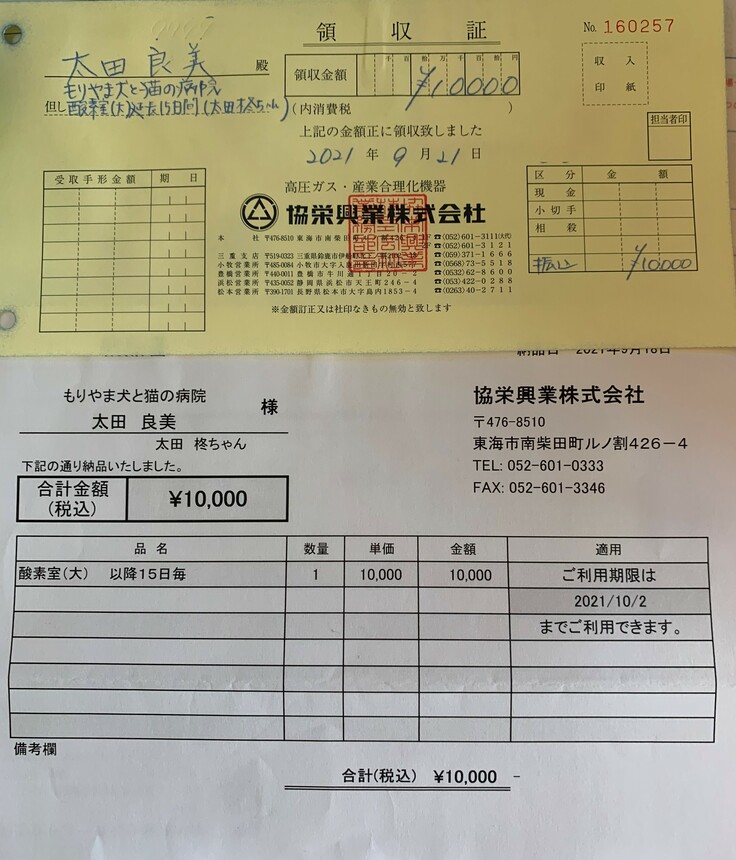 領収証
No. 160257
太田良美 殿
もりやま犬と猫の病院
但し 酸素室(大)延長15日間(太田柊ちゃん)
領収金額 ¥10000
(内消費税 )
収入
印紙
上記の金額正に領収致しました
担当者印
2021年9月21日
受取手形金額 期日
高圧ガス・産業合理化機器
協栄興業株式会社
本社 〒476-8510 東海市南柴田町 ☎(052)601-3111(大代)
☎(052)601-3121
三重支店 〒519-0323 三重県鈴鹿市伊 ☎(059)371-1666
小牧営業所 〒485-0084 小牧市大字入鹿 ☎(0568)73-5518
豊橋営業所 〒440-0011 豊橋市牛川通 ☎(0532)62-8600
浜松営業所 〒435-0052 静岡県浜松市天王町246-4 ☎(053)422-0288
松本営業所 〒390-1701 長野県松本市大字島内1853-4 ☎(0263)40-2711
※金額訂正又は社印なきもの無効と致します
区分 金額
現金
小切手
相殺
振込 ¥10000
納品日 2021年9月18日
もりやま犬と猫の病院
太田 良美 様
太田 柊ちゃん
下記の通り納品いたしました。
合計金額
(税込) ¥10,000
協栄興業株式会社
〒476-8510
東海市南柴田町ルノ割426-4
TEL: 052-601-0333
FAX: 052-601-3346
品名 数量 単価 金額 適用
酸素室(大) 以降15日毎 1 10,000 10,000 ご利用期限は
2021/10/2
までご利用できます。
備考欄
合計(税込) ¥10,000 -